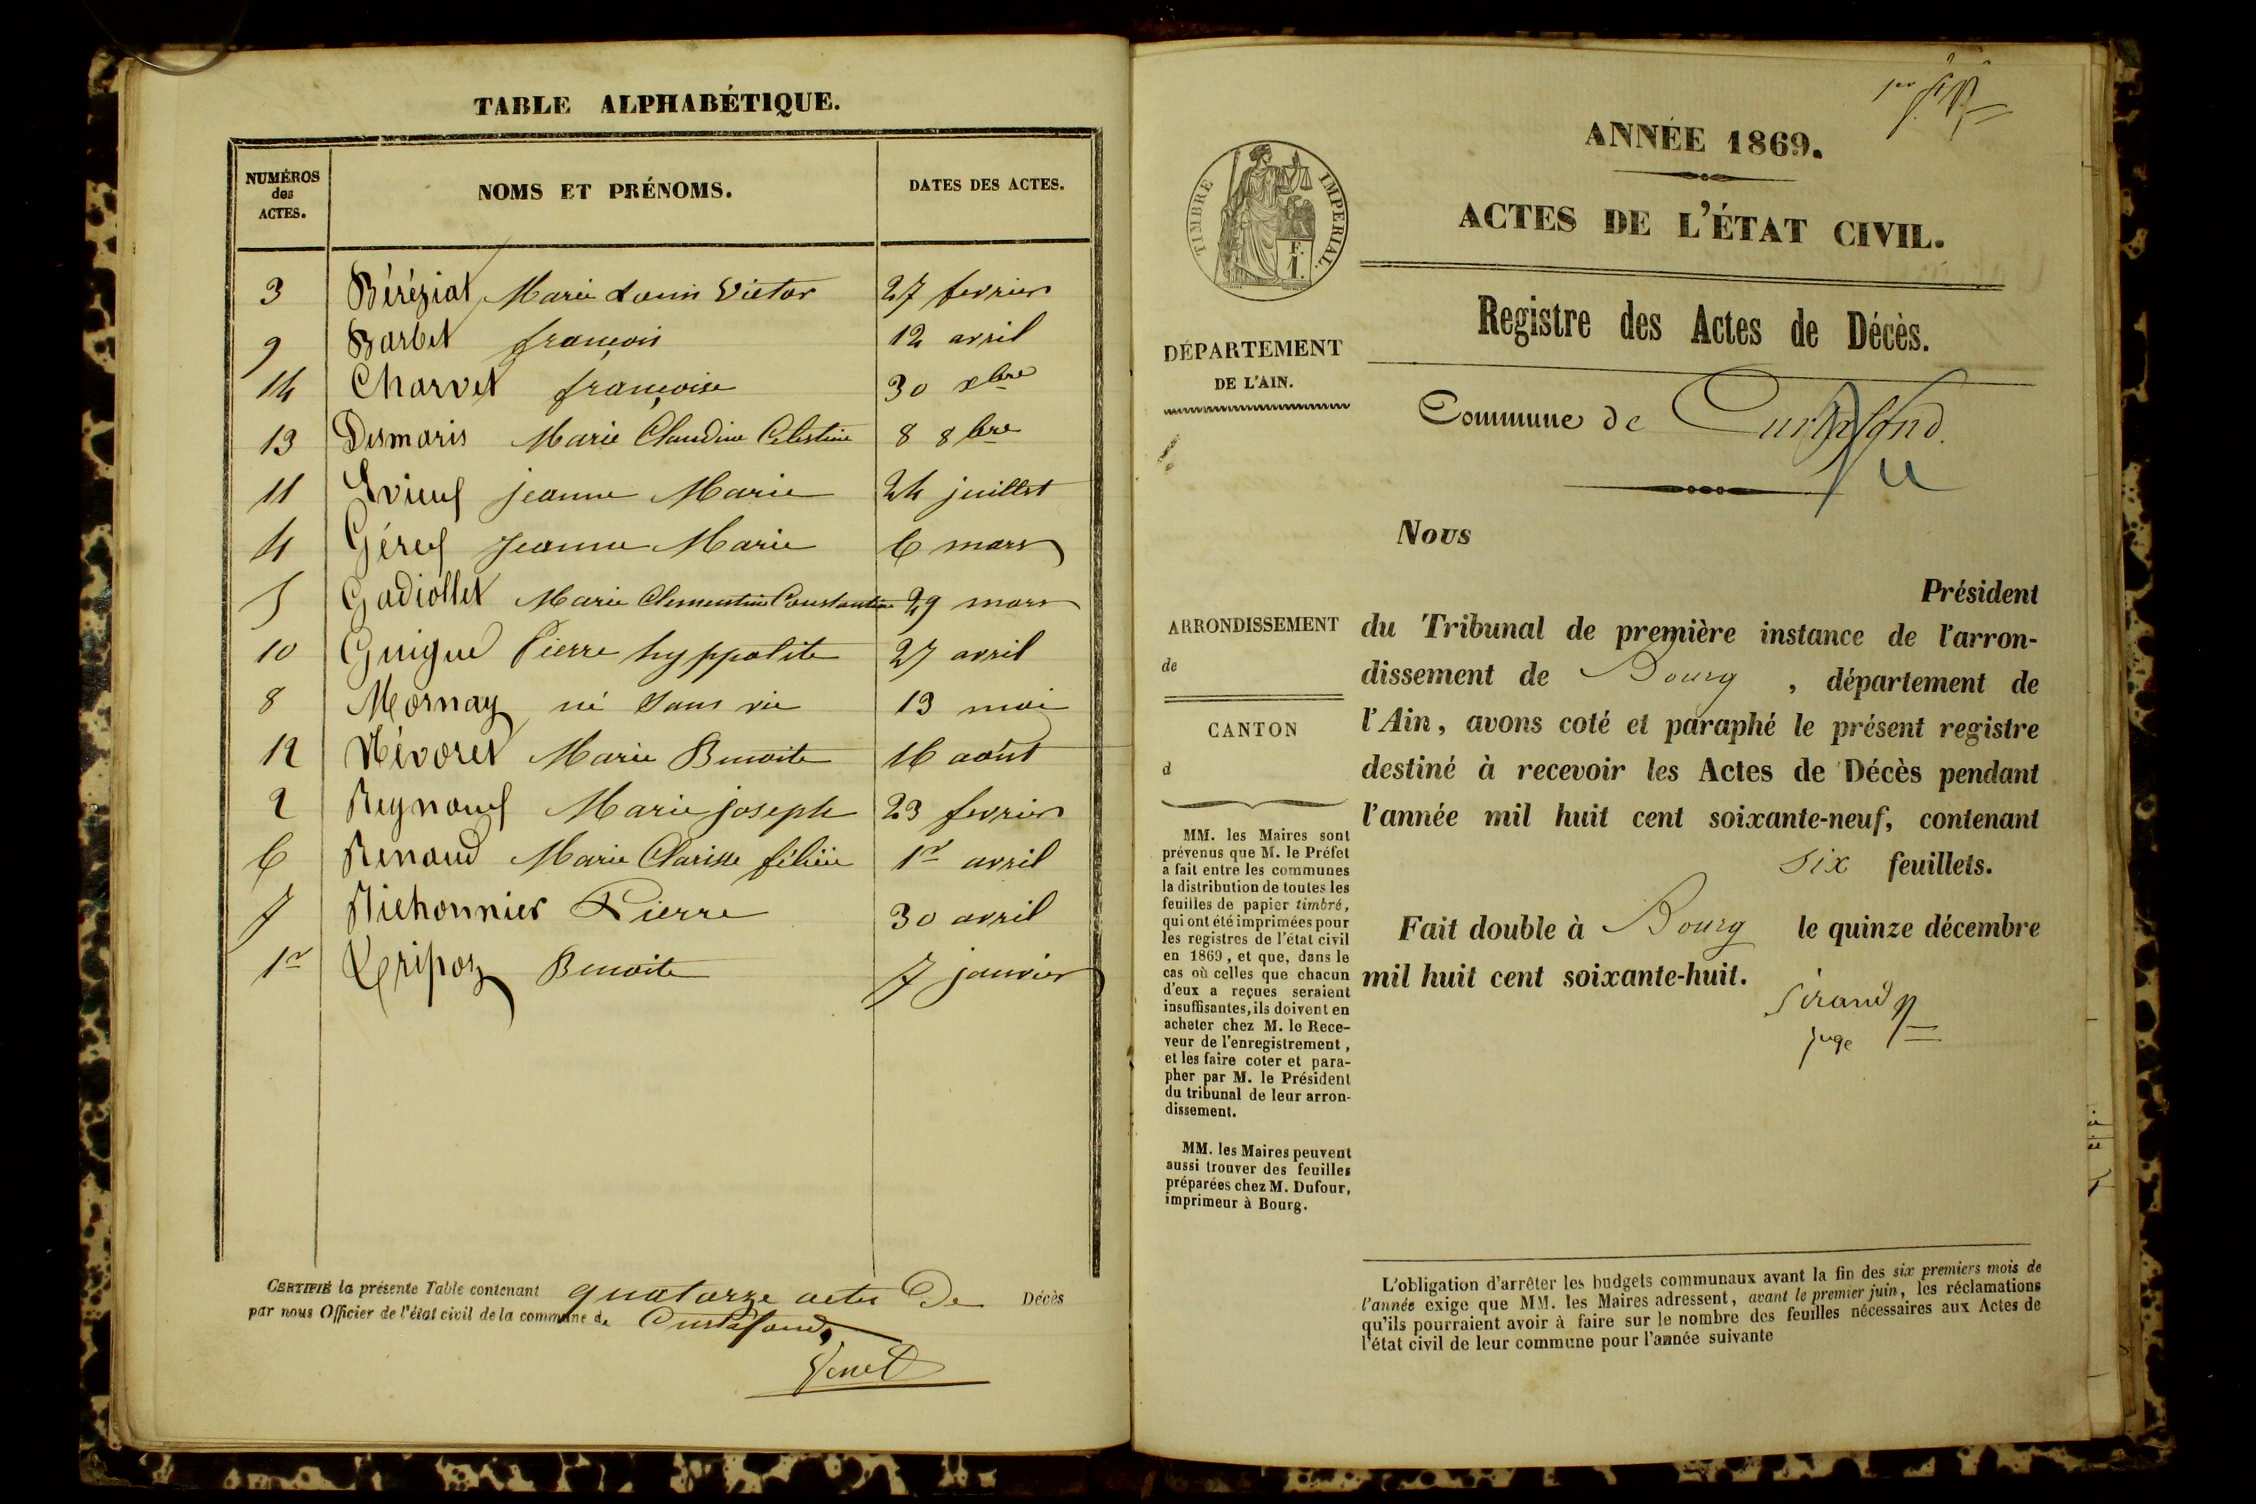 TABLE ALPHABÉTIQUE.
NUMÉROS
des
ACTES.
NOMS ET PRÉNOMS.
DATES DES ACTES.
3 Béréziat Marie Louis Victor 27 fevrier
9 Barbet françois 12 avril
14 Charvet françoise 30 xbre
13 Desmaris Marie Claudine Celestine 8 8bre
11 jeanne Marie 24 juillet
4 Jeanne Marie 6 mars
5 Gadiollet Marie Clementine Constantine 29 mars
10 Guigue Pierre hyppolite 27 avril
8 Mornay né sans vie 13 mai
12 Névoret Marie Benoite 16 août
2 Marie joseph 23 fevrier
6 Renaud Marie Clarisse félicie 1er avril
7 Pierre 30 avril
1er Benoite 7 janvier
CERTIFIÉ la présente Table contenant quatorze actes De Décès
par nous Officier de l'état civil de la commune de Curtafond,
ANNÉE 1869.
ACTES DE L'ÉTAT CIVIL.
TIMBRE IMPERIAL.
F.
1.
Registre des Actes de Décès.
DÉPARTEMENT
DE L'AIN.
Commune de Curtafond.
Vu
Nous
Président
du Tribunal de première instance de l'arron-
dissement de Bourg , département de
l'Ain, avons coté et paraphé le présent registre
destiné à recevoir les Actes de Décès pendant
l'année mil huit cent soixante-neuf, contenant
six feuillets.
Fait double à Bourg le quinze décembre
mil huit cent soixante-huit.
juge
ARRONDISSEMENT
de
CANTON
d
MM. les Maires sont
prévenus que M. le Préfet
a fait entre les communes
la distribution de toutes les
feuilles de papier timbré,
qui ont été imprimées pour
les registres de l'état civil
en 1869, et que, dans le
cas où celles que chacun
d'eux a reçues seraient
insuffisantes, ils doivent en
acheter chez M. le Rece-
veur de l'enregistrement,
et les faire coter et para-
pher par M. le Président
du tribunal de leur arron-
dissement.
MM. les Maires peuvent
aussi trouver des feuilles
préparées chez M. Dufour,
imprimeur à Bourg.
L'obligation d'arrêter les budgets communaux avant la fin des six premiers mois de
l'année exige que MM. les Maires adressent, avant le premier juin, les réclamations
qu'ils pourraient avoir à faire sur le nombre des feuilles nécessaires aux Actes de
l'état civil de leur commune pour l'année suivante